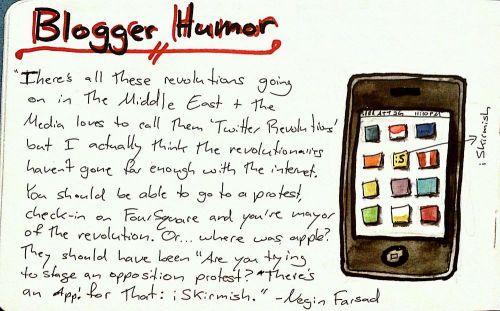 Blogger Humor
"There's all these revolutions going
on in The Middle East + the
Media loves to call them 'Twitter Revolutions'
but I actually think the revolutionaries
haven't gone far enough with the internet.
You should be able to go to a protest,
check-in on FourSquare and you're mayor
of the revolution. Or... where was apple?
They should have been "Are you trying
to stage an opposition protest? "There's
an App! for That: iSkirmish." - Negin Farsad
AT&T 3G
:S
iSkirmish